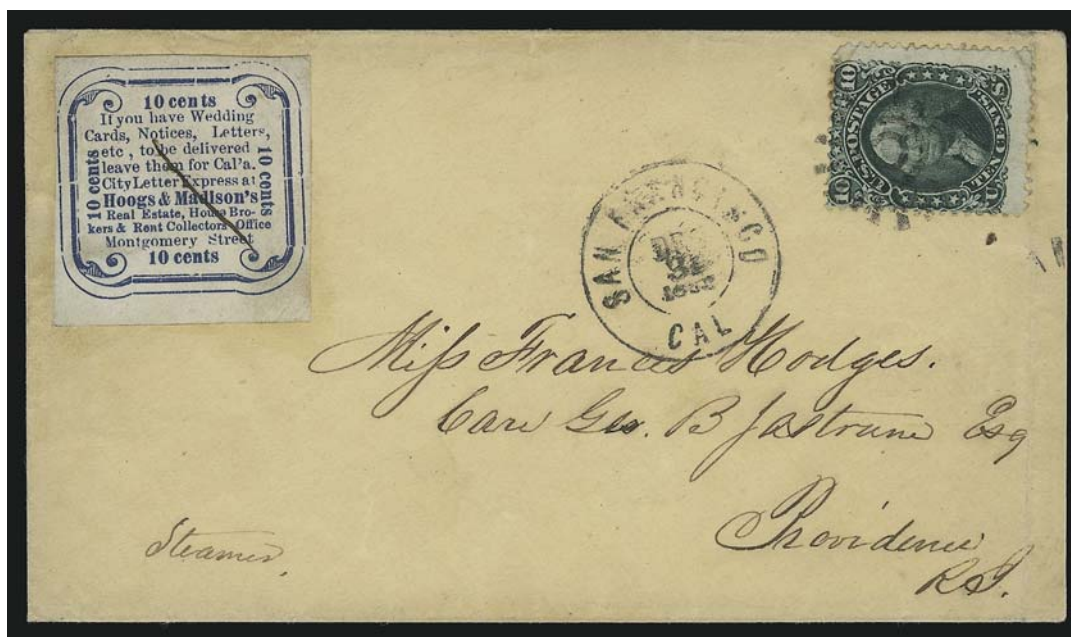 10 cents
If you have Wedding
Cards, Notices, Letters,
etc , to be delivered
leave them for Cal'a.
City Letter Express at
Hoogs & Madison's
Real Estate, House Bro-
kers & Rent Collectors Office
Montgomery Street
10 cents
10 cents
10 cents
10
U.S. POSTAGE
10
TEN CENTS
U S
SAN FRANCISCO
DEC
CAL
Miss Frances Hodges.
Care Geo. B Jastrum Esq
Providence
R.I.
Steamer.